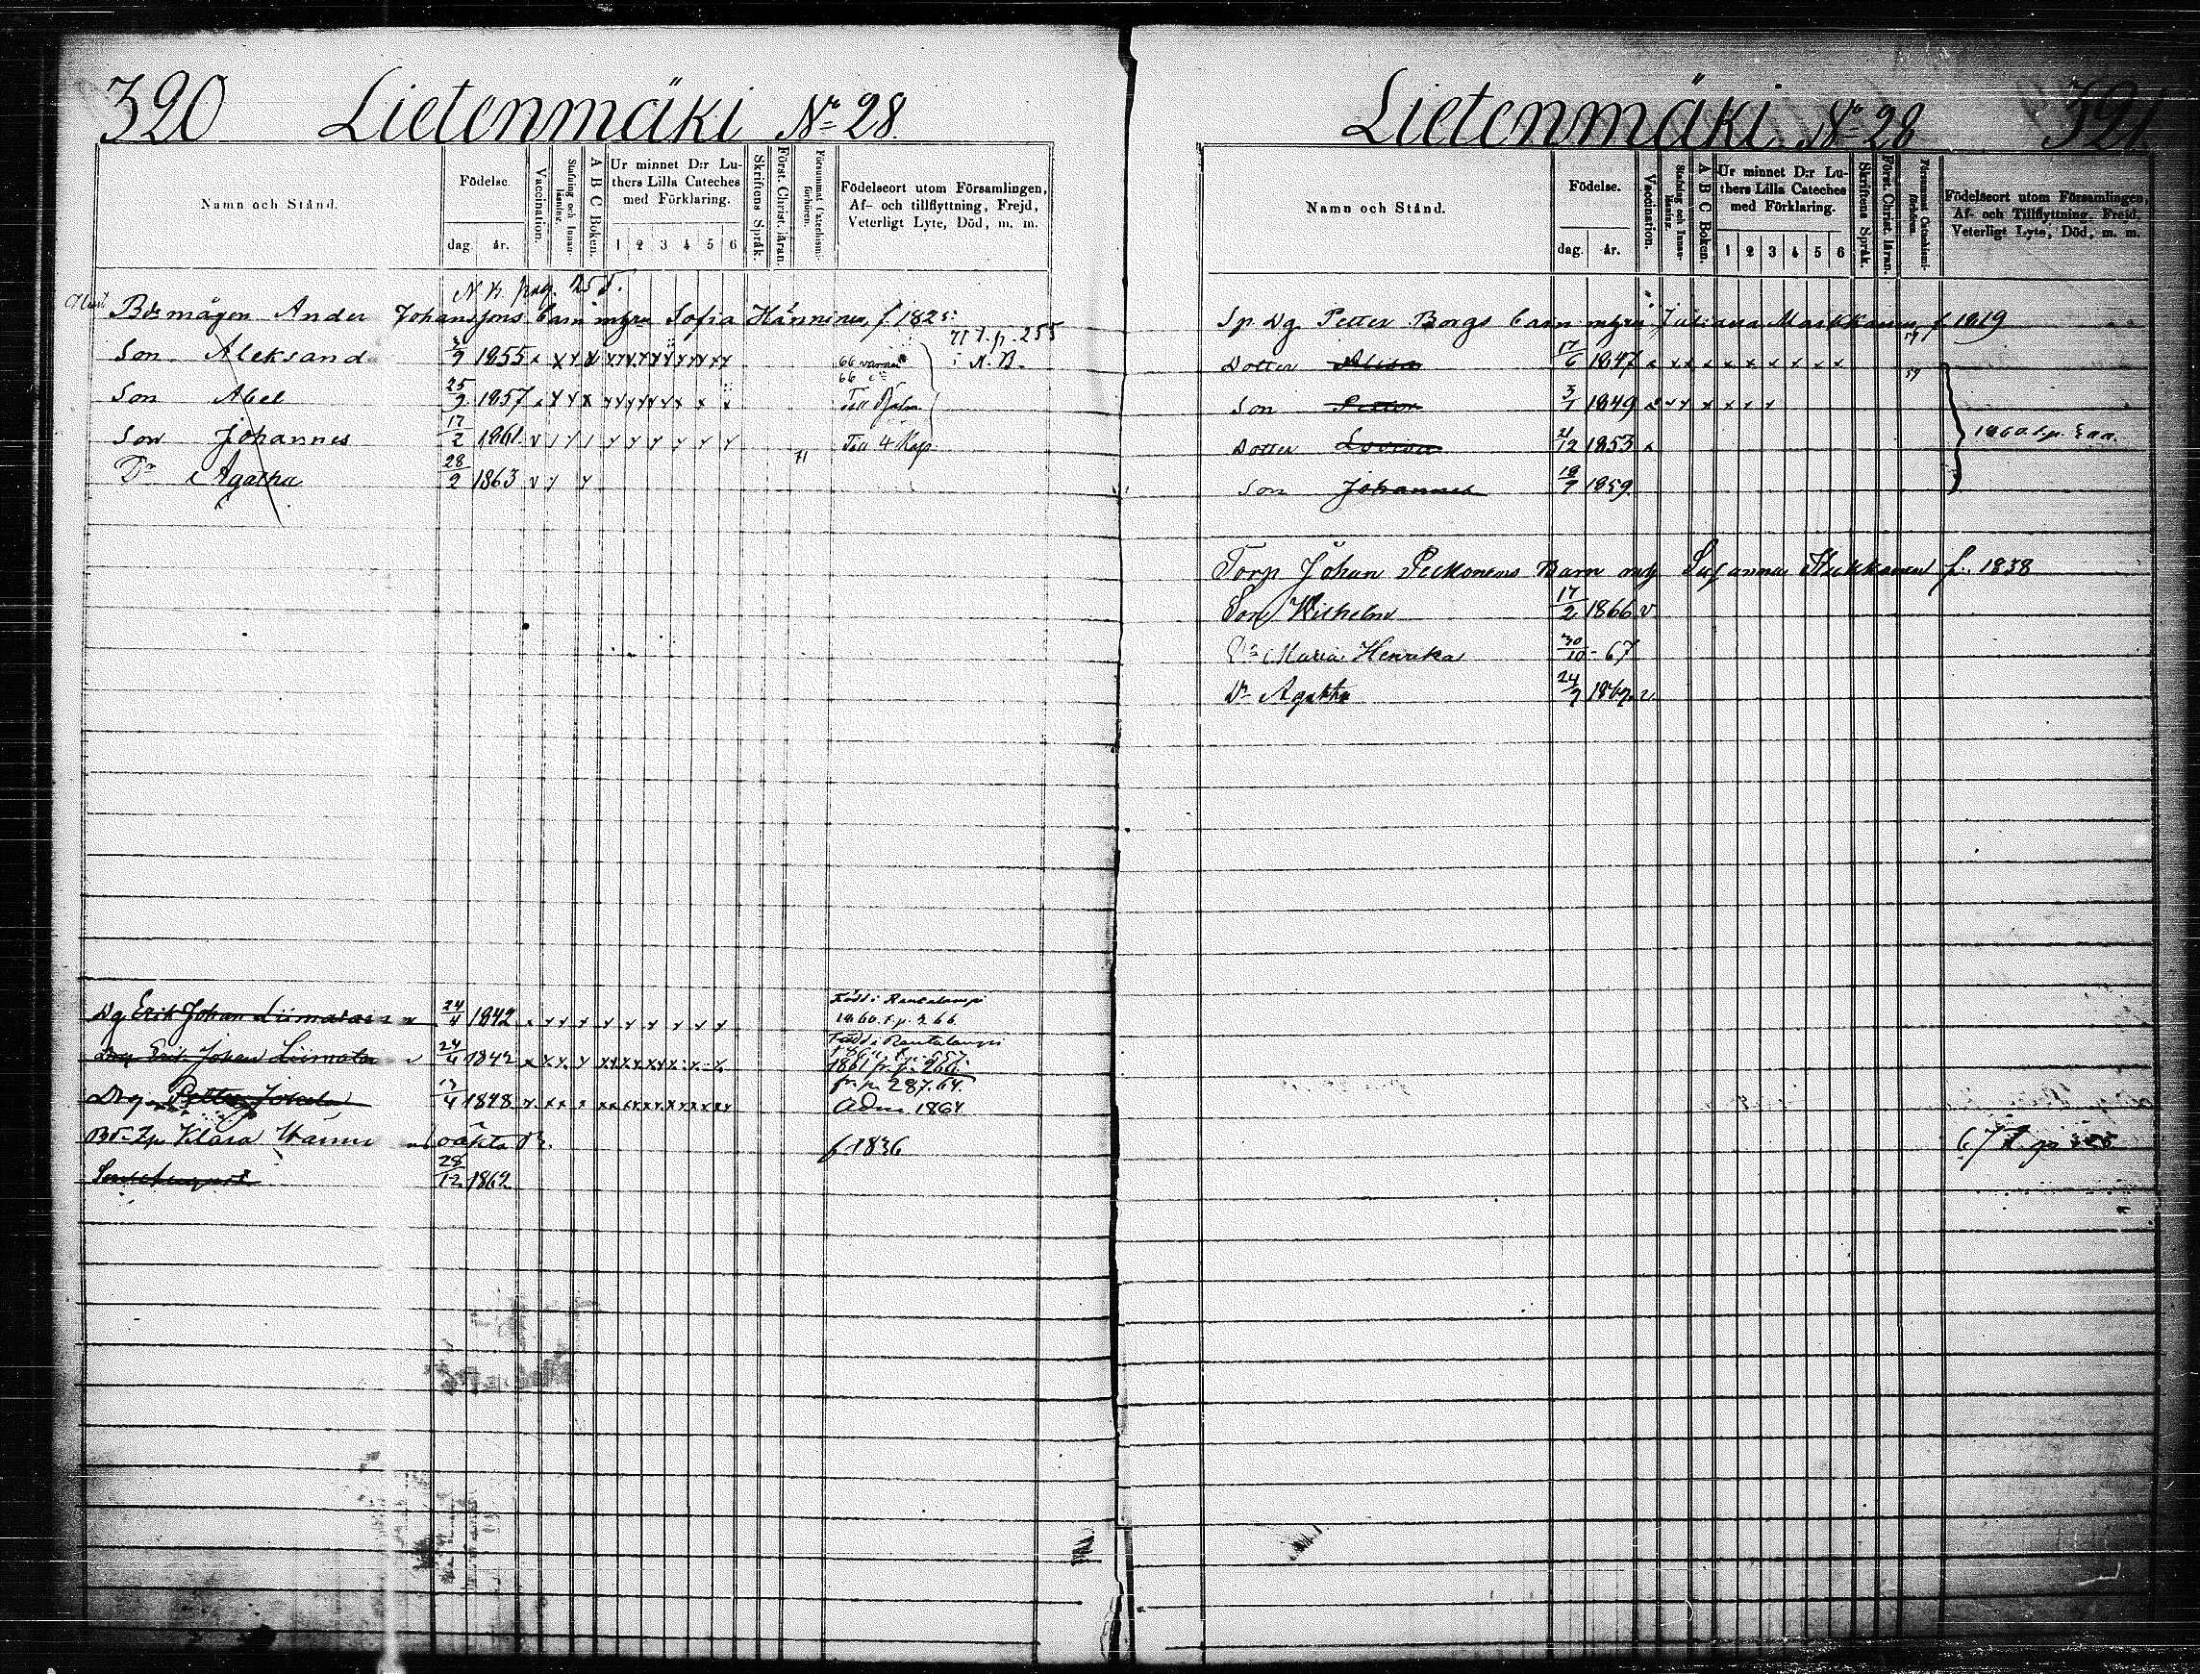 320 Lietenmäki No 28.
Namn och Stånd.
Födelse.
dag. år.
Vaccination.
Stafning och Innanläsning.
A B C Boken.
Ur minnet D:r Luthers Lilla Cateches med Förklaring.
1 2 3 4 5 6
Skriftens Språk.
Först. Christ. läran.
Försummat Catechismiförhören.
Födelseort utom Församlingen, Af- och tillflyttning, Frejd, Veterligt Lyte, Död, m. m.
pag. 255.
Bdsmågen Anders Johanssons barn m hru Sofia Hänninen, f. 1825:
71 t. p. 255
Son Aleksand 3/9 1855 i N. B.
Son Abel 25/9 1857
Son Johannes 17/2 1861
Dr Agatha 28/2 1863 71
Född i Rautalampi
Dg Erik Johan Liimatain 24/4 1842 1860. t. p. 266.
Född i Rautalampi
Drg Erik Johan Liimata 24/4 1842
1861 fr. p. 260.
fr. p. 287. 64.
Drg Petter Jokela 17/4 1848 Adm 1864
Klara Hänni oäkta Br. f 1836
Son August 28/12 1862
Lietenmäki No 28 321.
Namn och Stånd.
Födelse.
dag. år.
Vaccination.
Stafning och Innanläsning.
A B C Boken.
Ur minnet D:r Luthers Lilla Cateches med Förklaring.
1 2 3 4 5 6
Skriftens Språk.
Först. Christ. läran.
Försummat Catechismiförhören.
Födelseort utom Församlingen, Af- och Tillflyttning, Frejd, Veterligt Lyte, Död, m. m.
Sp. Dg. Petter Borgs barn m hru Juliana Markkanen, f 1819
Dotter Alisa 17/6 1847 59
Son Petter 3/1 1849 59
Dotter Lovisa 21/12 1853
Son Johannes 18/7 1859
Torp Johan Peckonens Barn m h Susanna Hukkanen f. 1838
Son Wilhelm 17/2 1866 v
Dr Maria Henrika 30/10 - 67
Dr Agatha 24/7 1869 v
67 t. p. 325